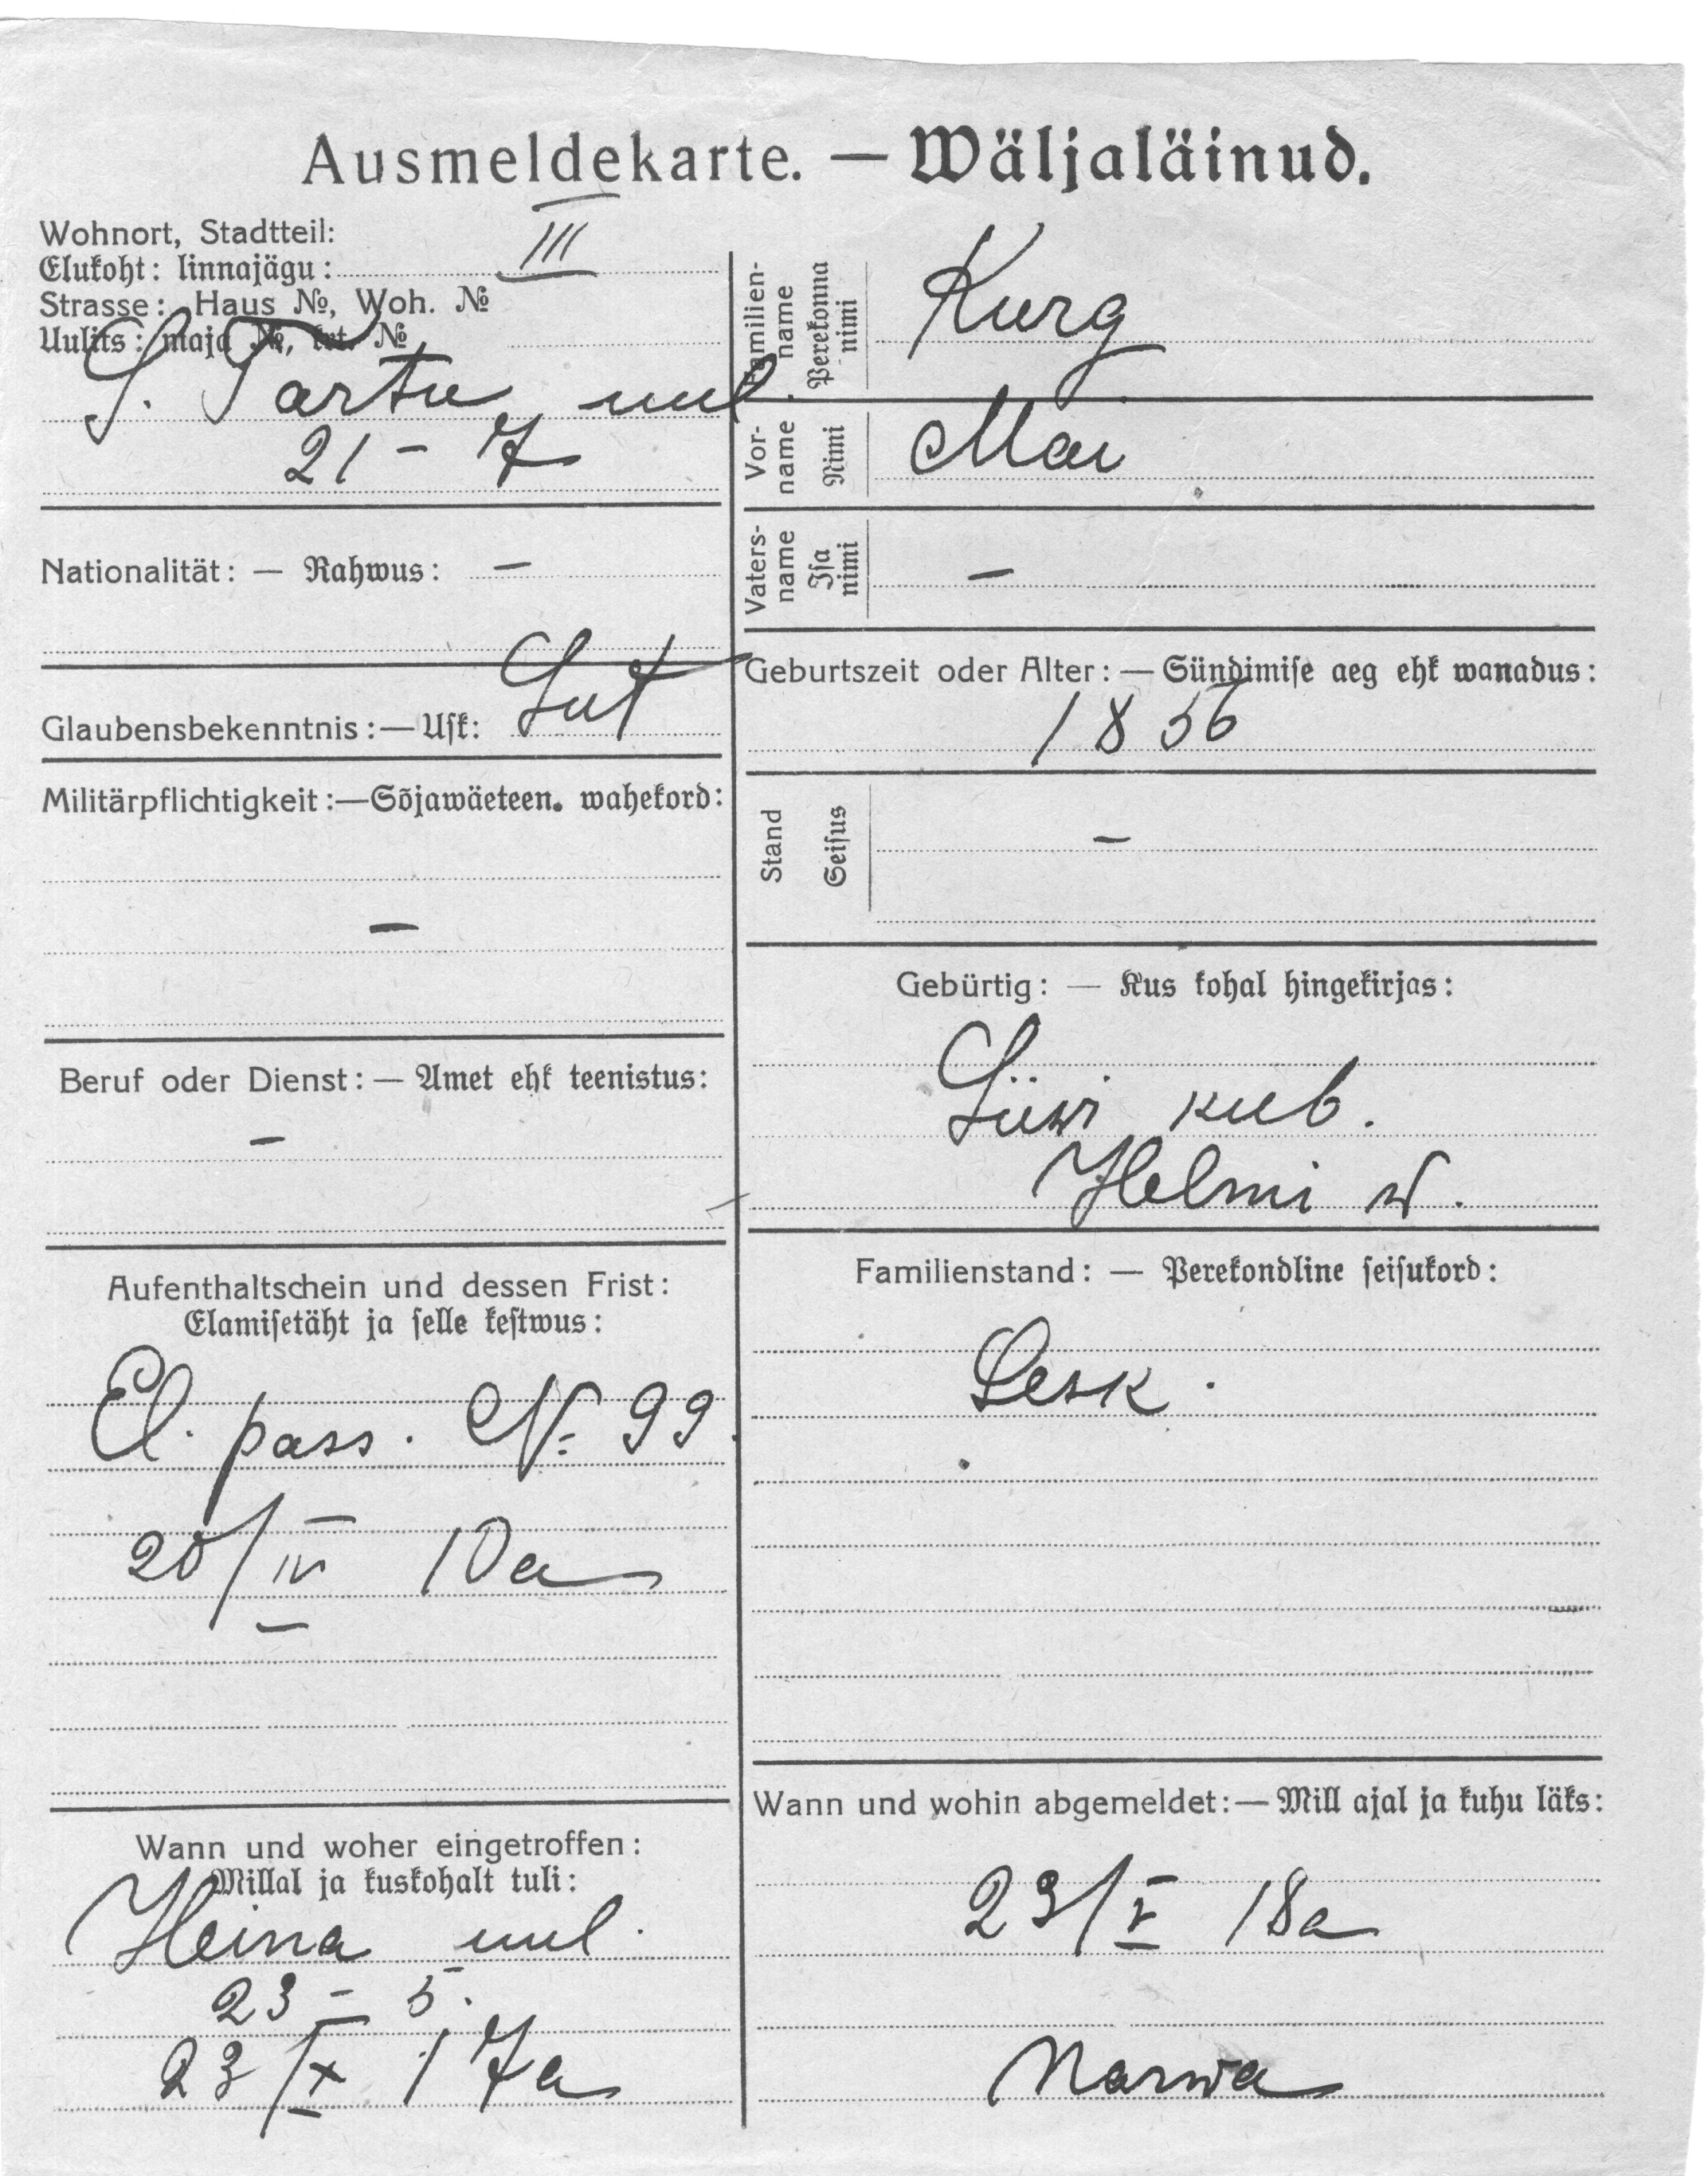 Ausmeldekarte. — Wäljaläinud.
Wohnort, Stadtteil:
Elukoht: linnajägu: III
Strasse: Haus №, Woh. №
Uulits: maja №, krt. №
S. Tartu uul.
21 – 7
Nationalität: — Rahwus: –
Glaubensbekenntnis:— Usk: Lut
Militärpflichtigkeit:—Sõjawäeteen. wahekord:
–
Beruf oder Dienst: — Amet ehk teenistus:
–
Aufenthaltschein und dessen Frist:
Elamisetäht ja selle kestwus:
El. pass. № 99.
20/IV 10a
Wann und woher eingetroffen:
Millal ja kuskohalt tuli:
Heina uul.
23 – 5.
23/X 17a
Familien-
name
Perekonna
nimi
Kurg
Vor-
name
Nimi
Mai
Vaters-
name
Isa
nimi
–
Geburtszeit oder Alter: — Sündimise aeg ehk wanadus:
1856
Stand
Seisus
–
Gebürtig: — Kus kohal hingekirjas:
Liiwi kub.
Helmi w.
Familienstand: — Perekondline seisukord:
Lesk.
Wann und wohin abgemeldet:— Mill ajal ja kuhu läks:
23/V 18a
Narwa